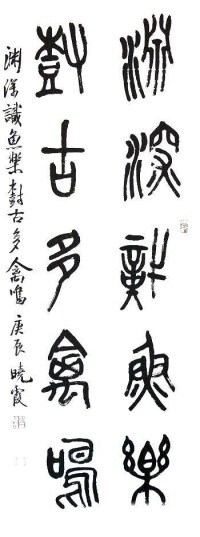 渊深識魚樂
尌古多禽鳴
渊深識魚樂尌古多禽鳴 庚辰 曉霞